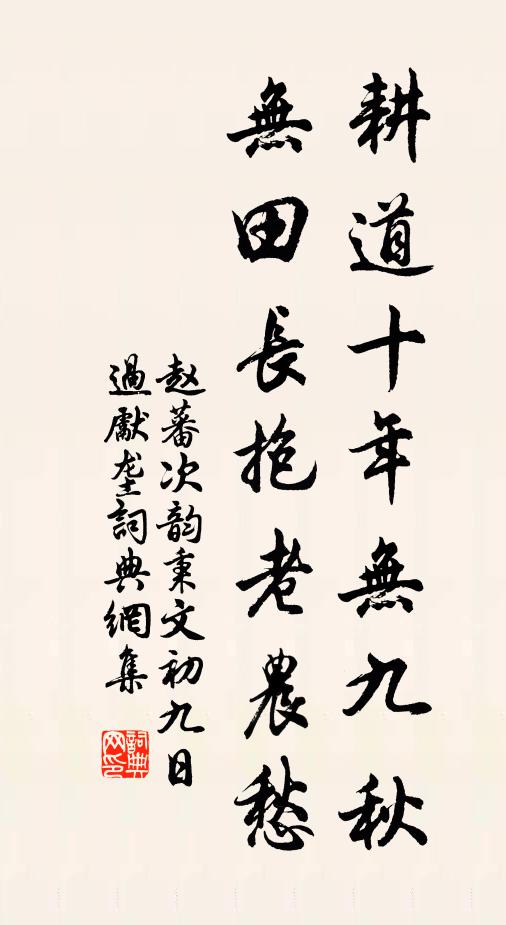 耕道十年無九秋
無田長抱老農愁
赵蕃次韵秉文初九日
過獻垄詞典網集
詞典
网印